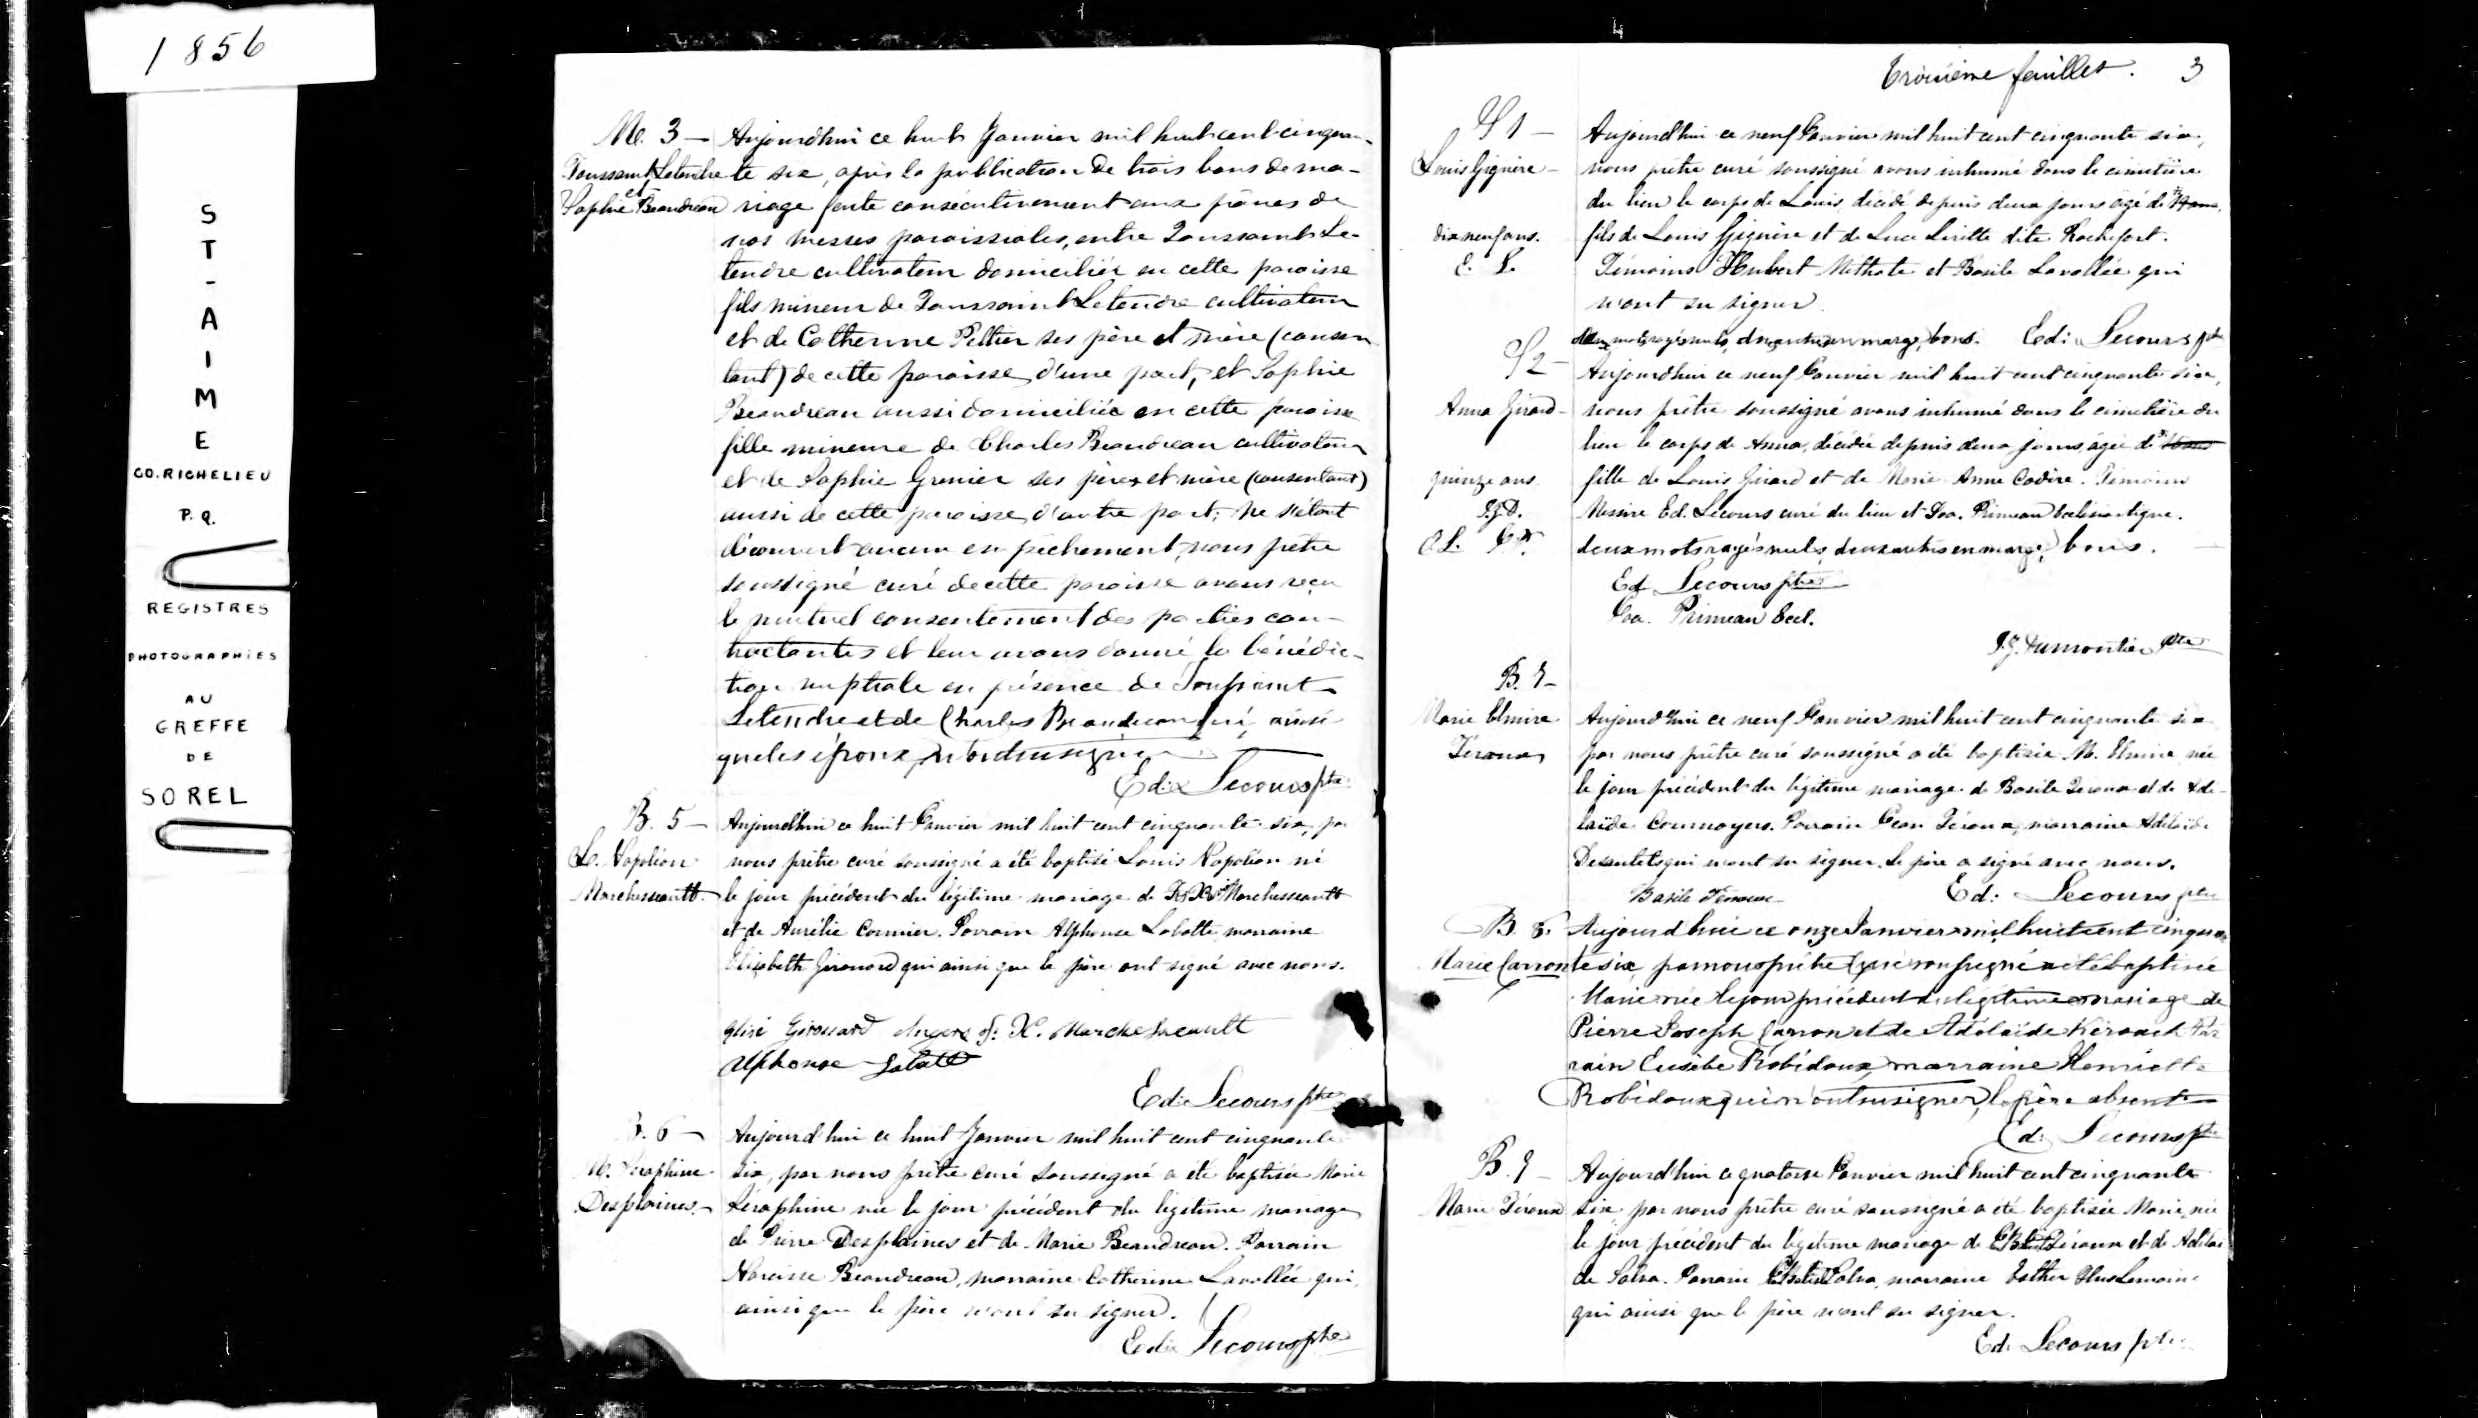 1856
S
T
-
A
I
M
E
CO. RICHELIEU
P. Q.
REGISTRES
PHOTOGRAPHIES
AU
GREFFE
DE
SOREL
M. 3 —
Toussaint Letendre
et
Sophie Beaudreau
Aujourd'hui ce huit Janvier mil huit cent cinquan-
te six, après la publication de trois bans de ma-
riage faite consécutivement aux prônes de
nos messes paroissiales, entre Toussaint Le-
tendre cultivateur domicilié en cette paroisse
fils mineur de Toussaint Letendre cultivateur
et de Catherine Peltier ses père et mère (consen
tant) de cette paroisse d'une part, et Sophie
Beaudreau aussi domiciliée en cette paroisse
fille mineure de Charles Beaudreau cultivateur
et de Sophie Grenier ses père et mère (consentant)
aussi de cette paroisse d'autre part; ne s'étant
découvert aucun empêchement, nous prêtre
soussigné curé de cette paroisse avons reçu
le mutuel consentement des parties con-
tractantes et leur avons donné la bénédic-
tion nuptiale en présence de Toussaint
Letendre et de Charles Beaudreau ainsi
que les époux n'ont su signer
Ed: Lecours ptre
B. 5 —
Ls. Napoléon
Marchesseault
Aujourd'hui ce huit Janvier mil huit cent cinquante six, par
nous prêtre curé soussigné a été baptisé Louis Napoléon né
le jour précédent du légitime mariage de Marchesseault
et de Aurélie Cormier. Parrain Alphonse Labatte marraine
Elizabeth Girouard qui ainsi que le père ont signé avec nous.
Girouard F. X. Marchesseault
Alphonse Labatt
Ed: Lecours ptre
B. 6 —
M. Séraphine
Desplaines. —
Aujourd'hui ce huit Janvier mil huit cent cinquante
six, par nous prêtre curé soussigné a été baptisée Marie
Séraphine née le jour précédent du légitime mariage
de Pierre Desplaines et de Marie Beaudreau. Parrain
Narcisse Beaudreau, marraine Catherine Lavallée qui
ainsi que le père n'ont su signer.
Ed: Lecours ptre
Troisième feuillet. 3
S 1 —
Louis Gignère —
dix neuf ans.
E. L.
Aujourd'hui ce neuf Janvier mil huit cent cinquante six,
nous prêtre curé soussigné avons inhumé dans le cimetière
du lieu le corps de Louis, décédé depuis deux jours âgé de
fils de Louis Gignère et de Luce Lirette dite Rochefort.
Témoins Hubert Methote et Basile Lavallée qui
n'ont su signer.
Deux mots rayés nuls, deux autres en marge, bons. Ed: Lecours ptre
S 2 —
Anna Girard —
quinze ans
J.G.D.
Aujourd'hui ce neuf Janvier mil huit cent cinquante six,
nous prêtre soussigné avons inhumé dans le cimetière du
lieu le corps de Anna, décédée depuis deux jours, âgée de
fille de Louis Girard et de Marie Anne Cadire. Témoins
Messire Ed. Lecours curé du lieu et Jos. Primeau Ecclésiastique.
deux mots rayés nuls, deux autres en marge, bons. —
Ed. Lecours ptre
Jos. Primeau Eccl.
J. G. Dumontier ptre
B. 7 —
Marie Elmire
Téroux
Aujourd'hui ce neuf Janvier mil huit cent cinquante six
par nous prêtre curé soussigné a été baptisée M. Elmire née
le jour précédent du légitime mariage de Basile Téroux et de Adé-
laïde Cournoyers. Parrain Jean Téroux, marraine Adélaïde
Desautels qui n'ont su signer. Le père a signé avec nous.
Basile Téroux Ed: Lecours ptre
B. 8.
Marie Carron
Aujourd'hui ce onze Janvier mil huit cent cinquan
te six, par nous prêtre curé soussigné a été baptisée
Marie née le jour précédent du légitime mariage de
Pierre Joseph Carron et de Adélaïde Kérouack Par
rain Eusèbe Robidoux, marraine Henriette
Robidoux qui n'ont su signer, le père absent
Ed: Lecours ptre
B. 9 —
Marie Téroux
Aujourd'hui ce quatorze Janvier mil huit cent cinquante
six par nous prêtre curé soussigné a été baptisée Marie, née
le jour précédent du légitime mariage de Téroux et de Adélaï
de Salva. Parrain Salva, marraine Esther
qui ainsi que le père n'ont su signer.
Ed. Lecours ptre